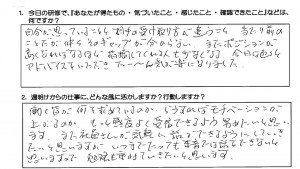 1. 今日の研修で、『あなたが得たもの・気づいたこと・感じたこと・確認できたこと』などは、
何ですか?
自分が思っていることと相手の受け取り方が違うこと 当たり前の
ことだが 中々そのギャップが分からない。またポジションが
高くなればなるほど 指摘してくれる人も少なくなる 今日色々
アドバイスをいただき 気が楽になりました。
2. 週明けからの仕事に、どんな風に活かしますか?行動しますか?
働く皆が何を求めているのか、どうすればモチベーションが
上がるのか もっと 受信できるよう 努めたいと思い
ます。また社員さんが気軽に話ができるようにしていき
たいと思いますが いつまでたっても 話はできないと
思いますので 勉強も続けていきたいと思います。